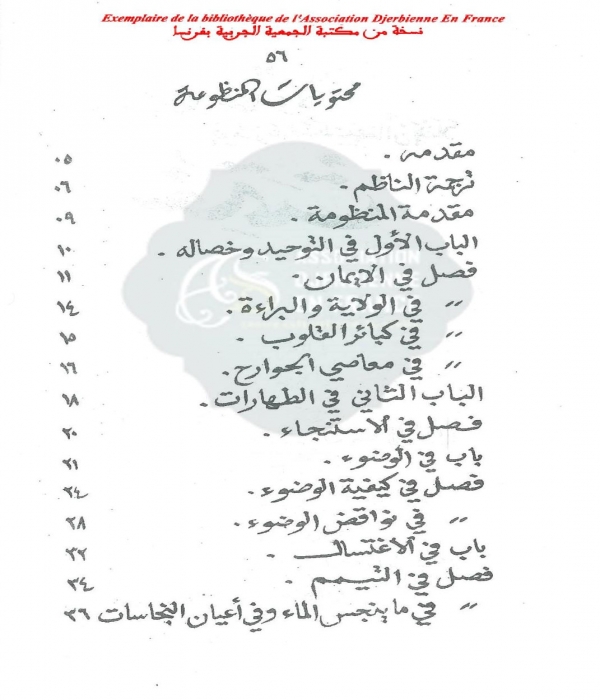 Exemplaire de la bibliothèque de l'Association Djerbienne En France
نسخة من مكتبة الجمعية الجربية بفرنسا
٥٦
محتويات المنظومة
مقدمه . ٠٥
ترجمة الناظم . ٠٦
مقدمة المنظومة . ٠٩
الباب الأول في التوحيد وخصاله . ١٠
فصل في الايمان . ١١
" في الولاية والبراءة . ١٤
" في كبائر القلوب . ١٥
" في معاصي الجوارح . ١٦
الباب الثاني في الطهارات . ١٨
فصل في الاستنجاء . ٢٠
باب في الوضوء . ٢١
فصل في كيفية الوضوء . ٢٤
" في نواقض الوضوء . ٢٨
باب في الاغتسال . ٣٢
فصل في التيمم . ٣٤
" في ما ينجس الماء وفي أعيان النجاسات ٣٦